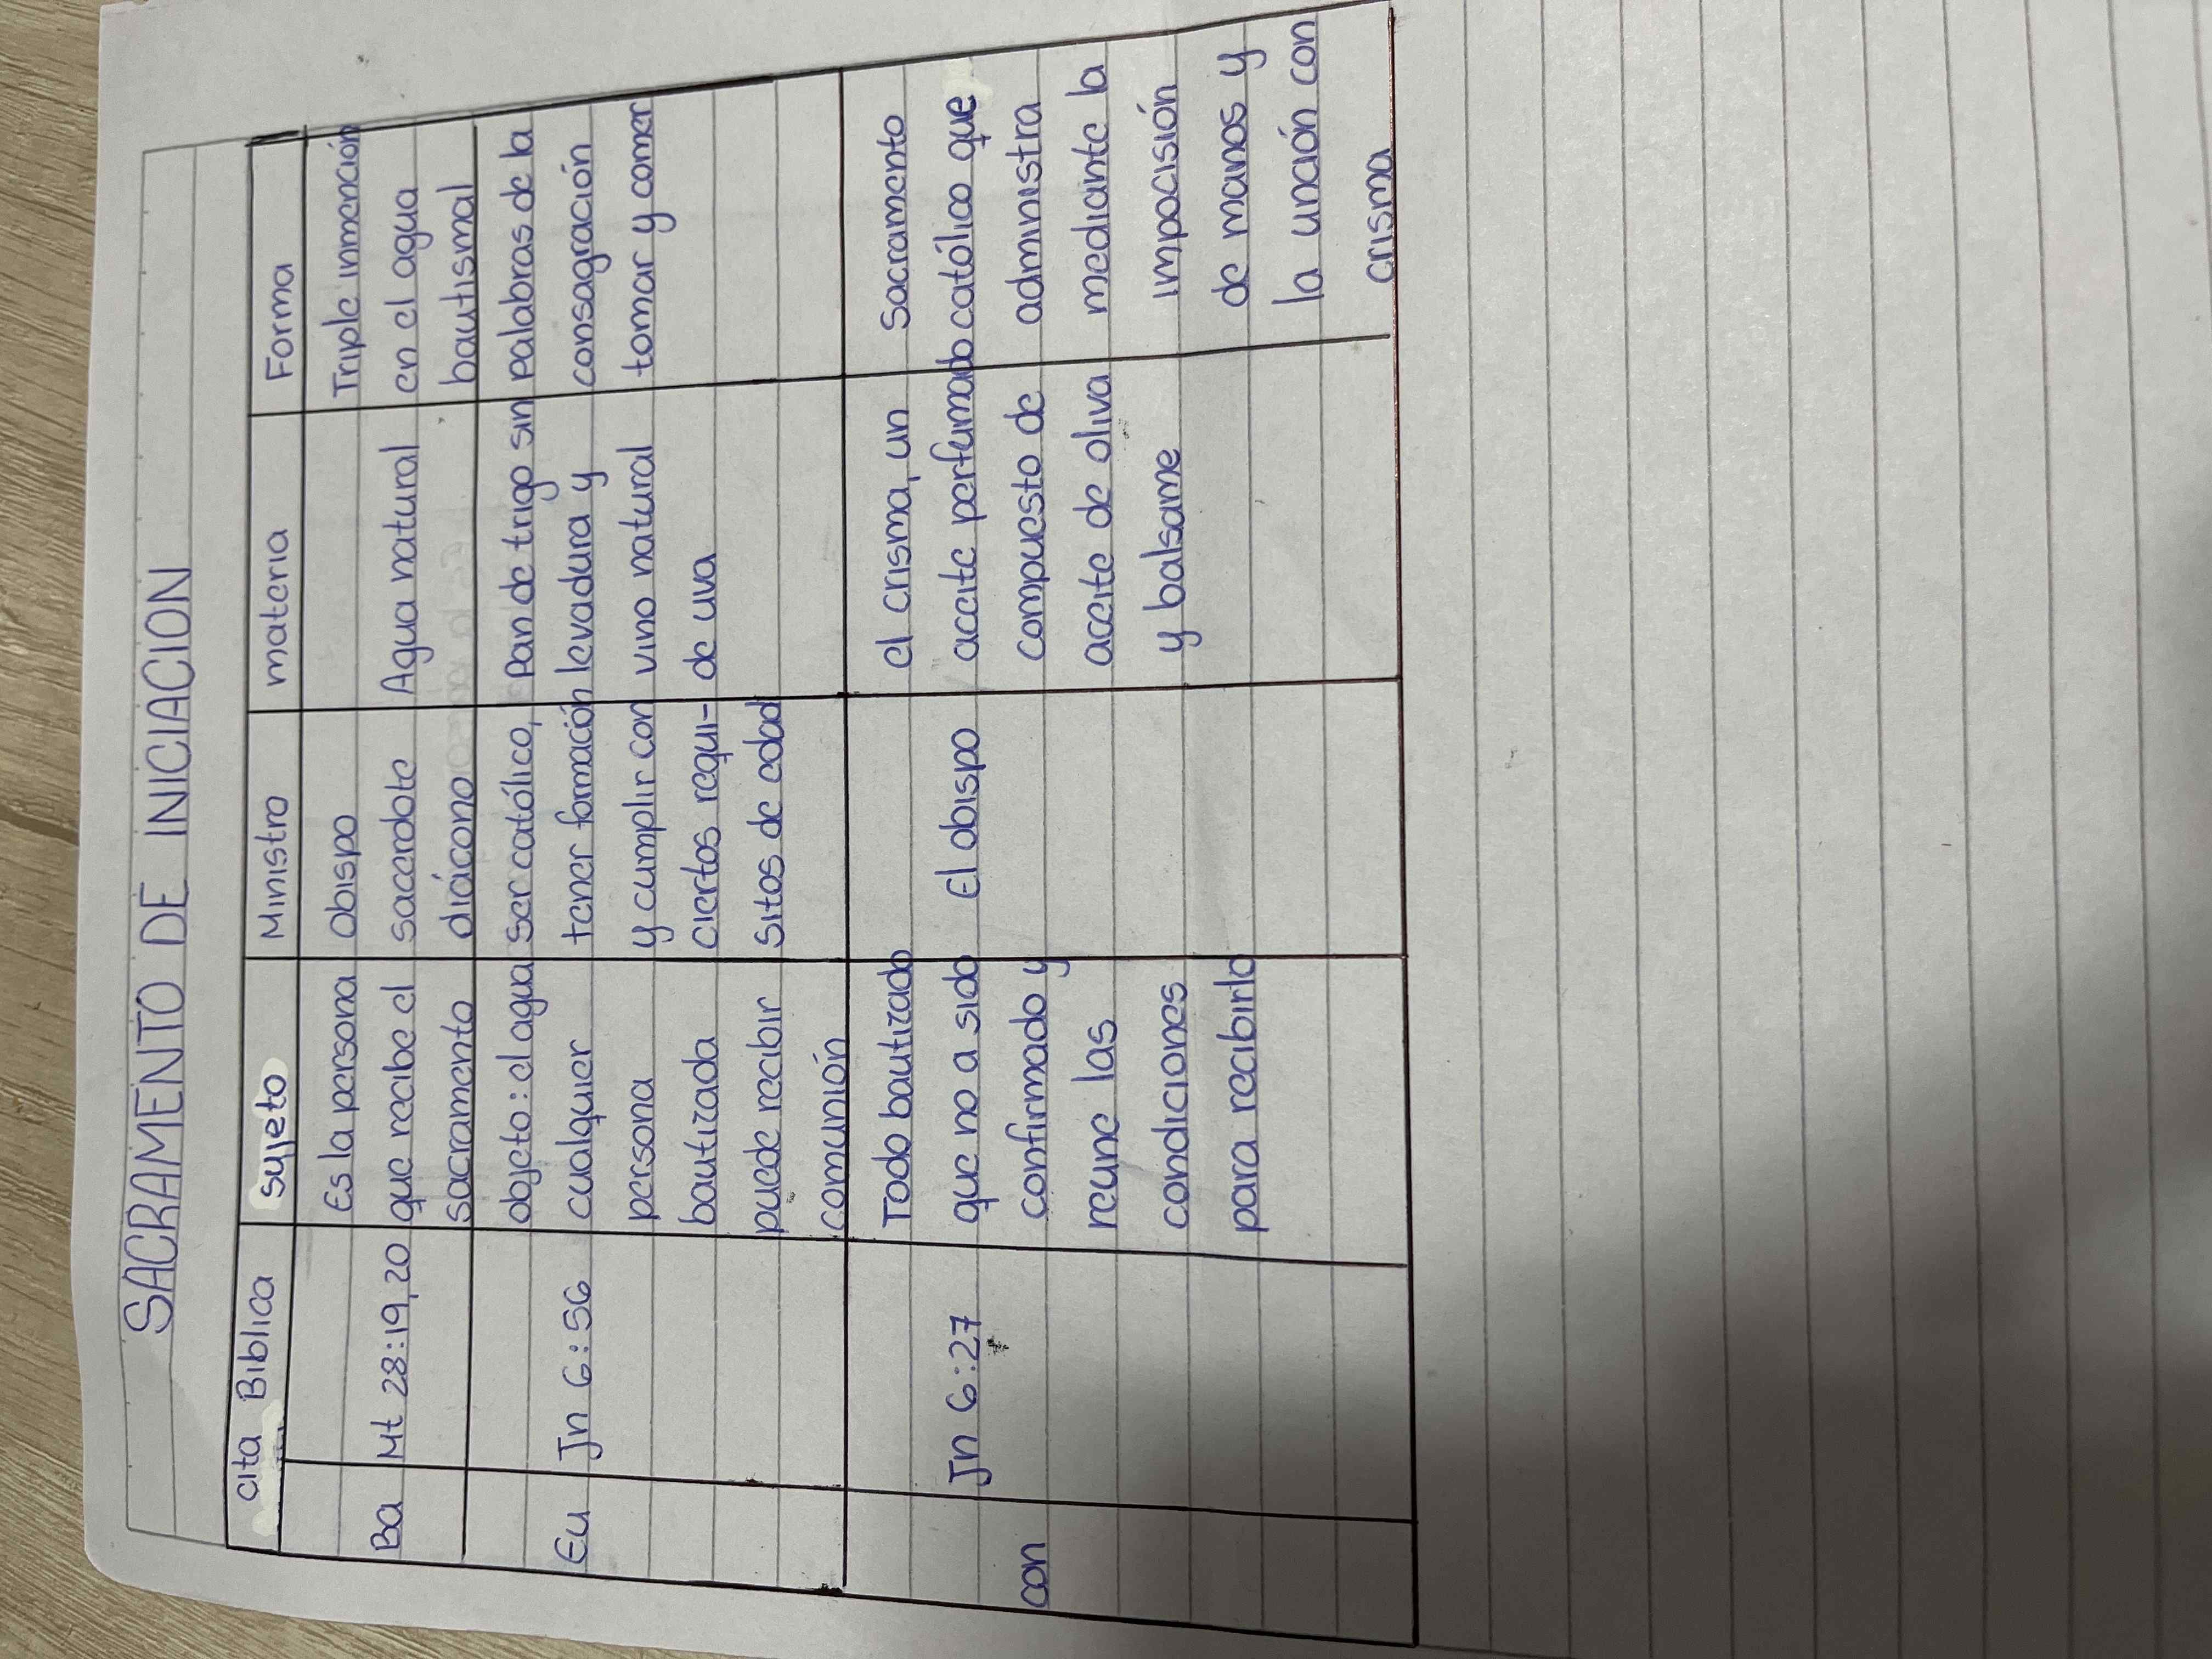 SACRAMENTO DE INICIACION
cita Biblica
sujeto
Ministro
materia
Forma
Ba
Mt 28:19,20
Es la persona
que recibe el
sacramento
obispo
sacerdote
diácono
Agua natural
Triple inmención
en el agua
bautismal
Eu
Jn 6:56
objeto: el agua
cualquier
persona
bautizada
puede recibir
comunión
ser católico,
tener formación
y cumplir con
ciertos requi-
sitos de edad
Pan de trigo sin
levadura y
vino natural
de uva
palabras de la
consagración
tomar y comer
con
Jn 6:27
Todo bautizado
que no a sido
confirmado y
reune las
condiciones
para recibirlo
El obispo
el crisma, un
aceite perfumado
compuesto de
aceite de oliva
y balsame
sacramento
católico que
administra
mediante la
impocisión
de manos y
la unción con
crisma